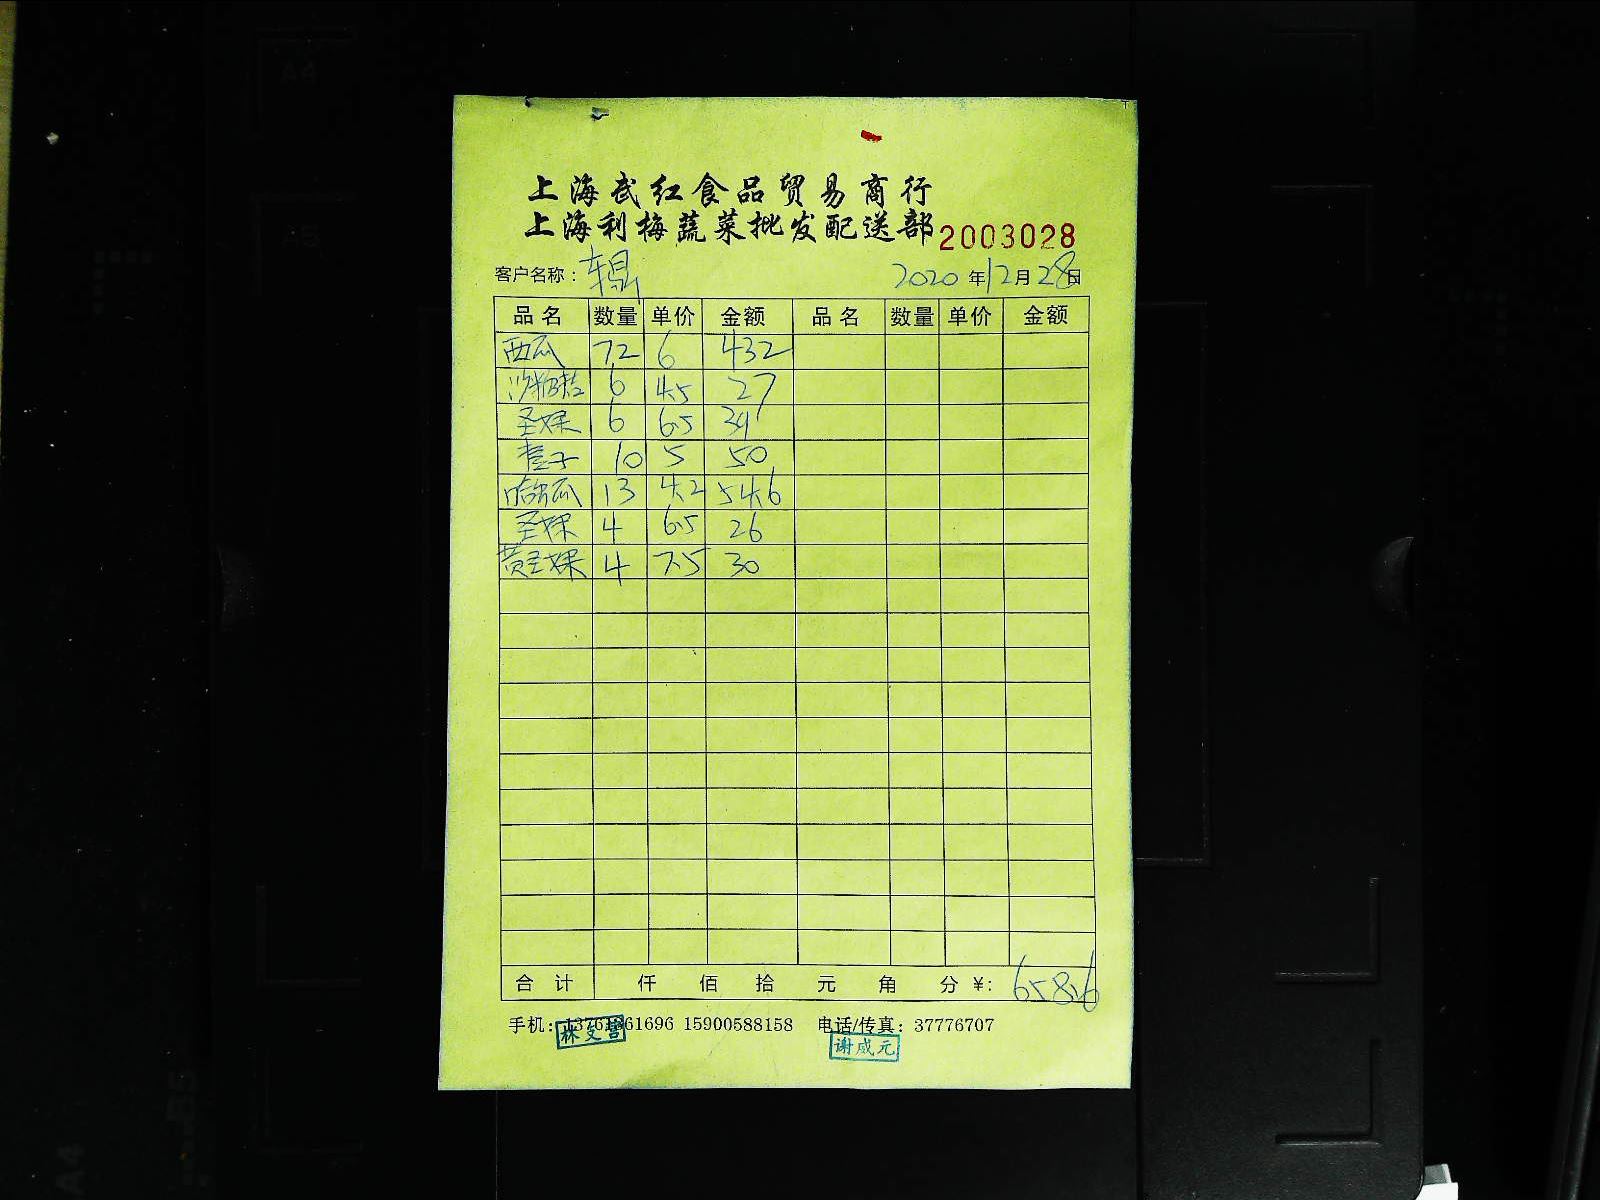 上海武红食品贸易商行
上海利梅蔬菜批发配送部 2003028
客户名称： 2020 年 12 月 28 日
品名 数量 单价 金额 品名 数量 单价 金额
西瓜 72 6 432
沙糖桔 6 4.5 27
圣女果 6 6.5 39
10 5 50
哈密瓜 13 4.2 54.6
圣女果 4 6.5 26
黄圣女果 4 7.5 30
合计 仟 佰 拾 元 角 分 ¥: 658.6
手机: 1696 15900588158 电话/传真: 37776707
谢威元